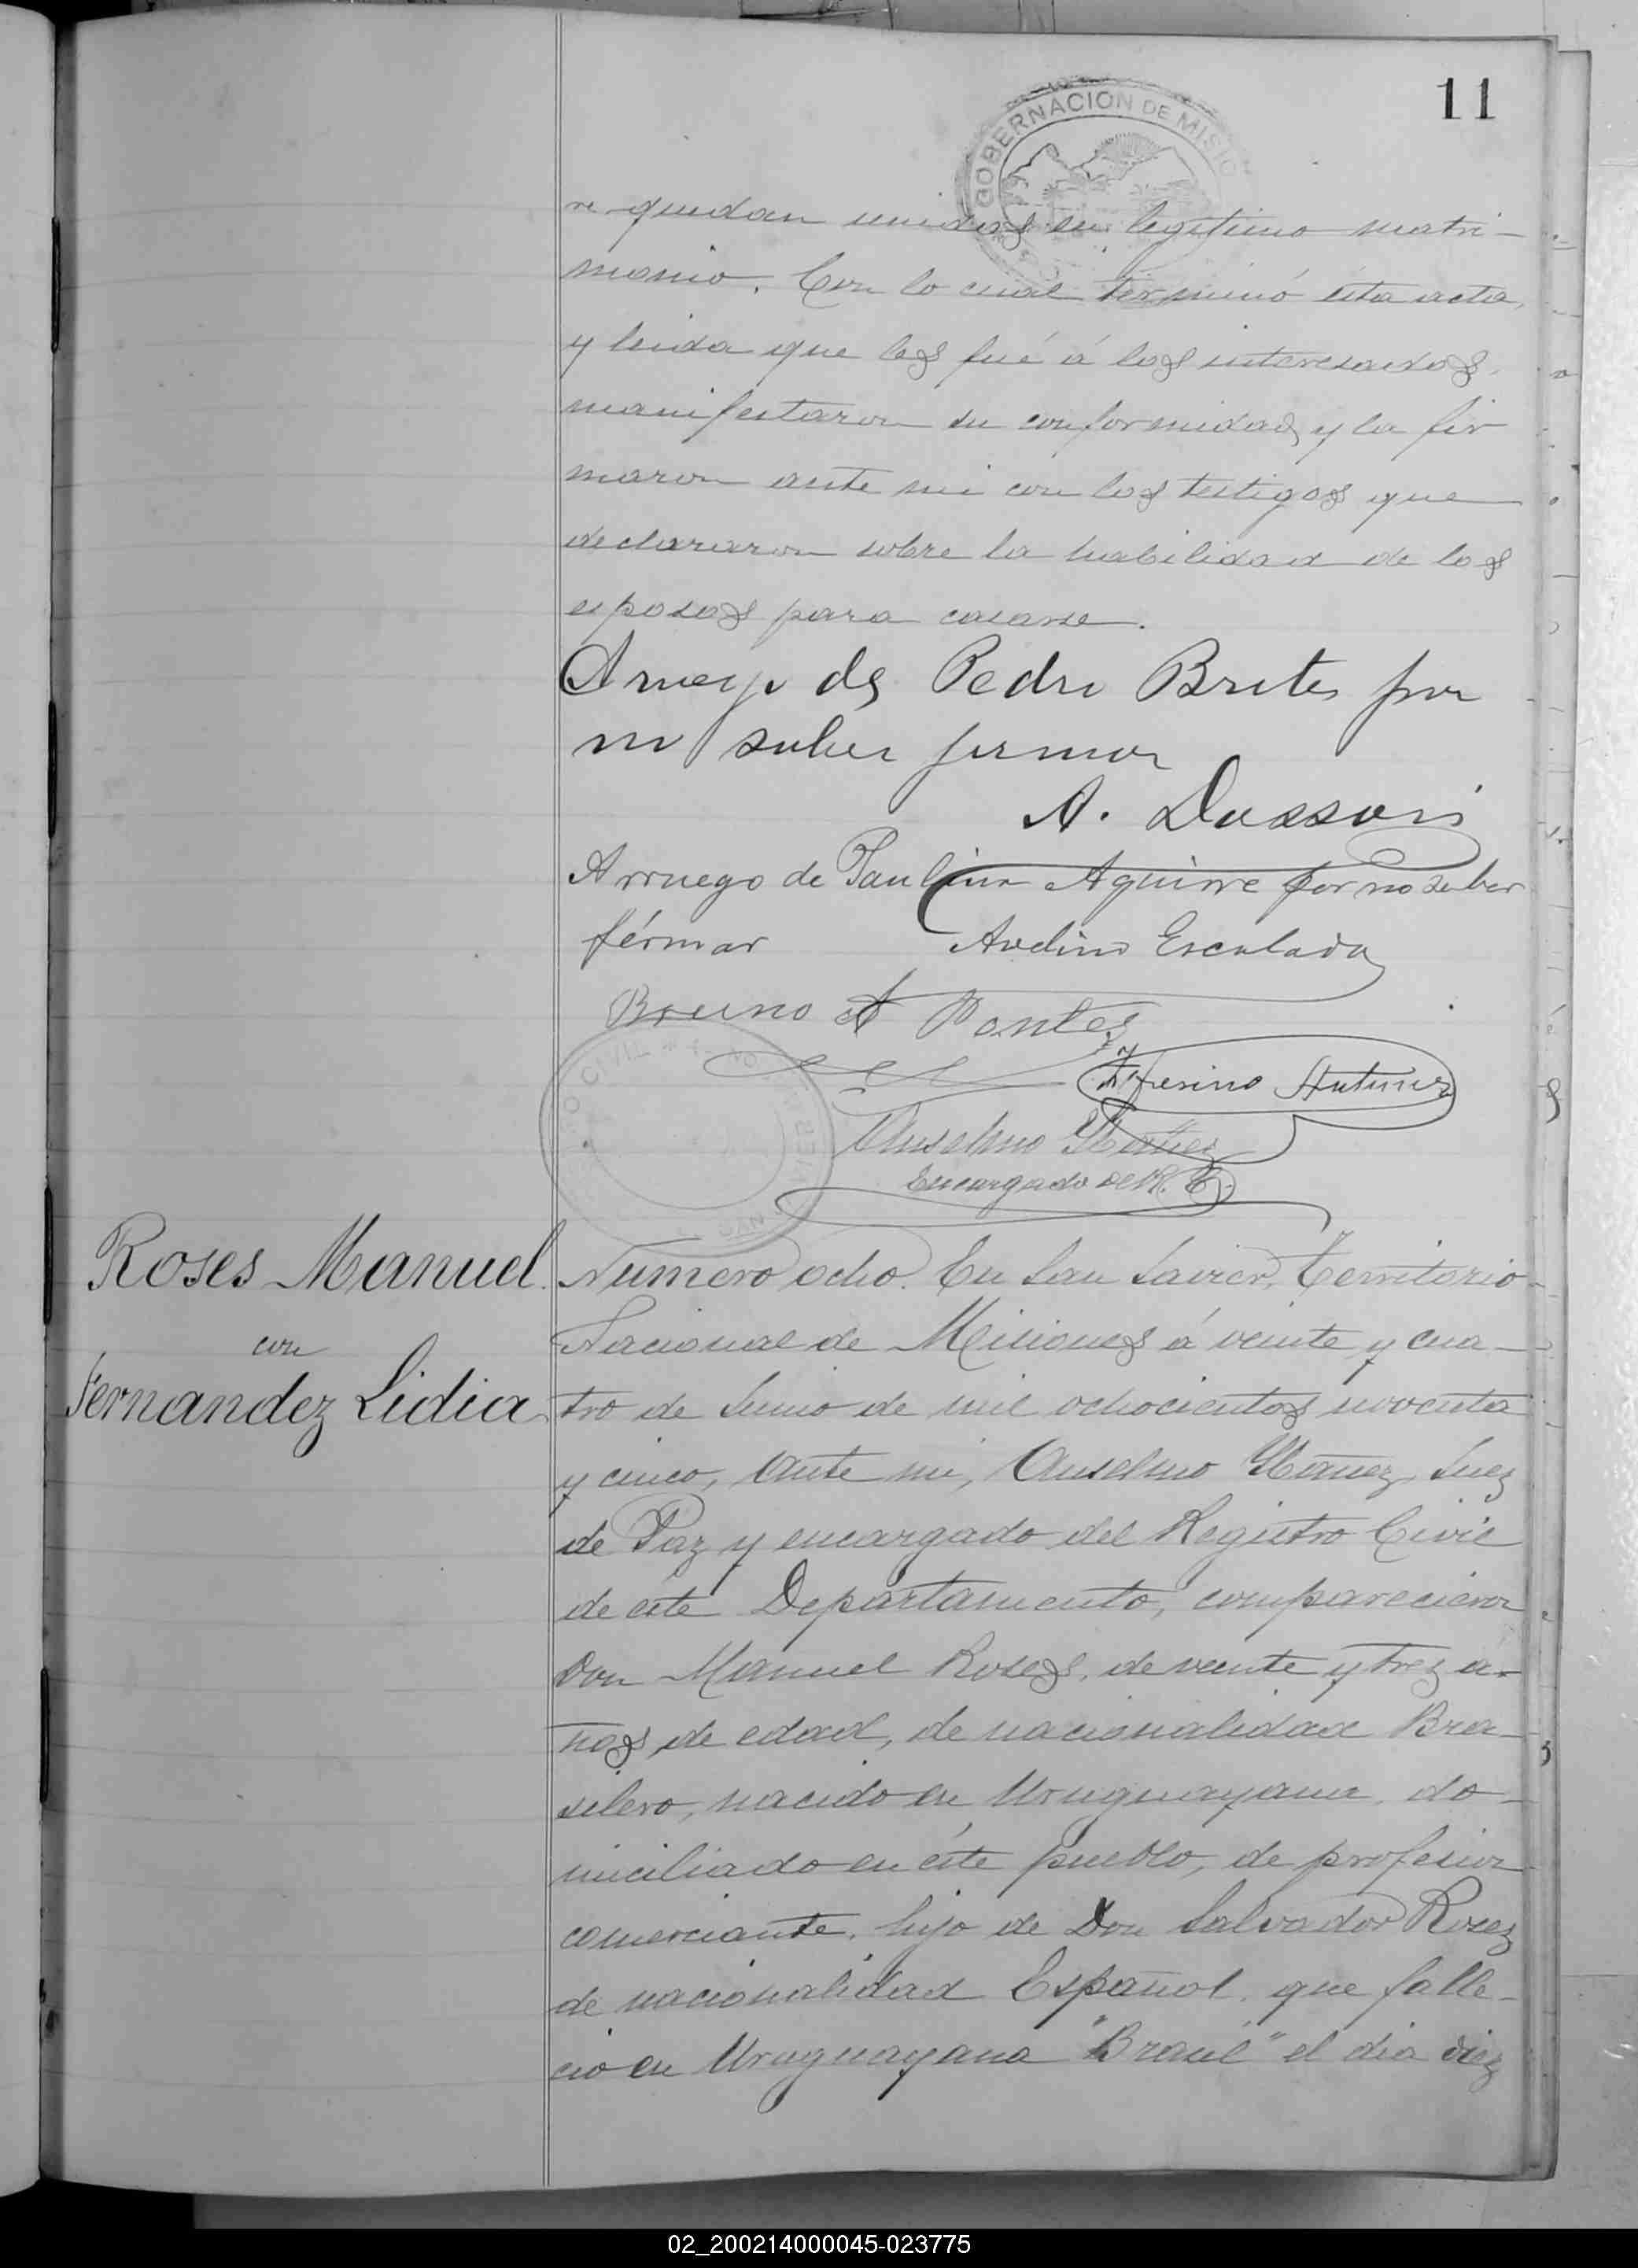 11
GOBERNACION DE MISIO
re quedan unidos en legitimo matri-
monio. Con lo cual terminó ésta acta,
y leida que les fué á los interesados,
manifestaron su conformidad y la fir
maron ante mi con los testigos que
declararon sobre la habilidad de los
esposos para casarse.
Arruego de Pedro Brites por
no saber firmar
A. Dassori
Arruego de Paulina Aguirre por no saber
férmar Avelino Escalada
Bruno A Pontes
Antunez
CIVIL
SAN
Anselmo Ybañez
Encargado del R. C.
Roses Manuel
con
Fernandez Lidia
Numero ocho. En San Javier, Territorio
Nacional de Misiones á veinte y cua-
tro de Junio de mil ochocientos noventa
y cinco, Ante mi, Anselmo Ybañez, Juez
de Paz y encargado del Registro Civil
de éste Departamento, comparecieron
Don Manuel Roses, de veinte y trez a-
ños de edad, de nacionalidad Bra-
silero, nacido en Uruguayana, do-
miciliado en éste pueblo, de profesion
comerciante, hijo de Don Salvador Rosez
de nacionalidad Español, que falle-
cio en Uruguayana "Brasil" el dia diez
02_200214000045-023775